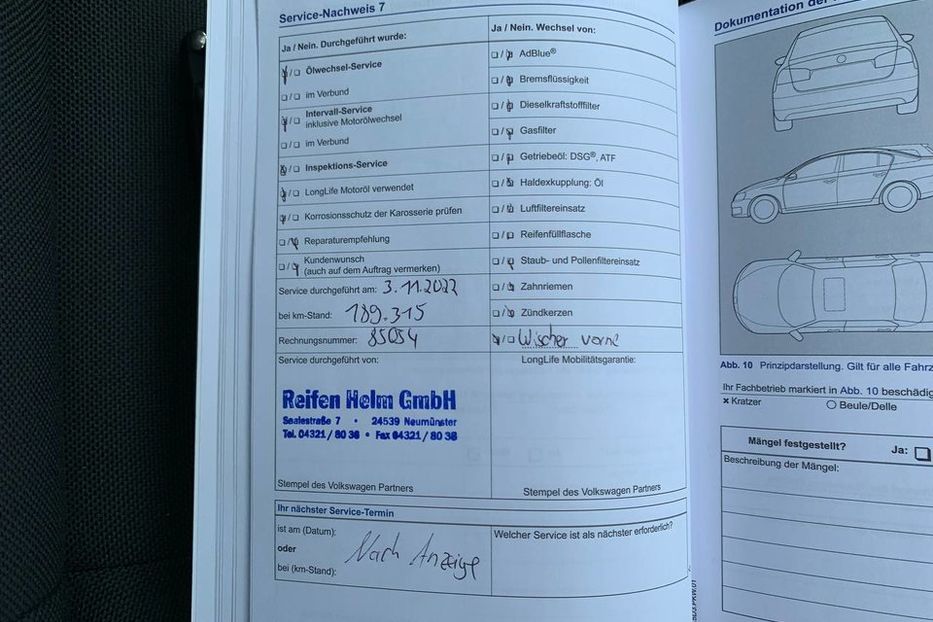 Service-Nachweis 7
Ja / Nein. Durchgeführt wurde:
Ölwechsel-Service
im Verbund
Intervall-Service
inklusive Motorölwechsel
im Verbund
Inspektions-Service
LongLife Motoröl verwendet
Korrosionsschutz der Karosserie prüfen
Reparaturempfehlung
Kundenwunsch
(auch auf dem Auftrag vermerken)
Service durchgeführt am: 3.11.2022
bei km-Stand: 189.315
Rechnungsnummer: 85054
Service durchgeführt von:
Reifen Helm GmbH
Saalestraße 7 • 24539 Neumünster
Tel. 04321 / 80 36 • Fax 04321 / 80 38
Stempel des Volkswagen Partners
Ja / Nein. Wechsel von:
AdBlue®
Bremsflüssigkeit
Dieselkraftstofffilter
Gasfilter
Getriebeöl: DSG®, ATF
Haldexkupplung: Öl
Luftfiltereinsatz
Reifenfüllflasche
Staub- und Pollenfiltereinsatz
Zahnriemen
Zündkerzen
Wischer vorne
LongLife Mobilitätsgarantie:
Stempel des Volkswagen Partners
Ihr nächster Service-Termin
ist am (Datum):
oder
bei (km-Stand):
Nach Anzeige
Welcher Service ist als nächster erforderlich?
Dokumentation der
Abb. 10 Prinzipdarstellung. Gilt für alle Fahrz
Ihr Fachbetrieb markiert in Abb. 10 beschädig
× Kratzer
Beule/Delle
Mängel festgestellt?
Ja:
Beschreibung der Mängel: